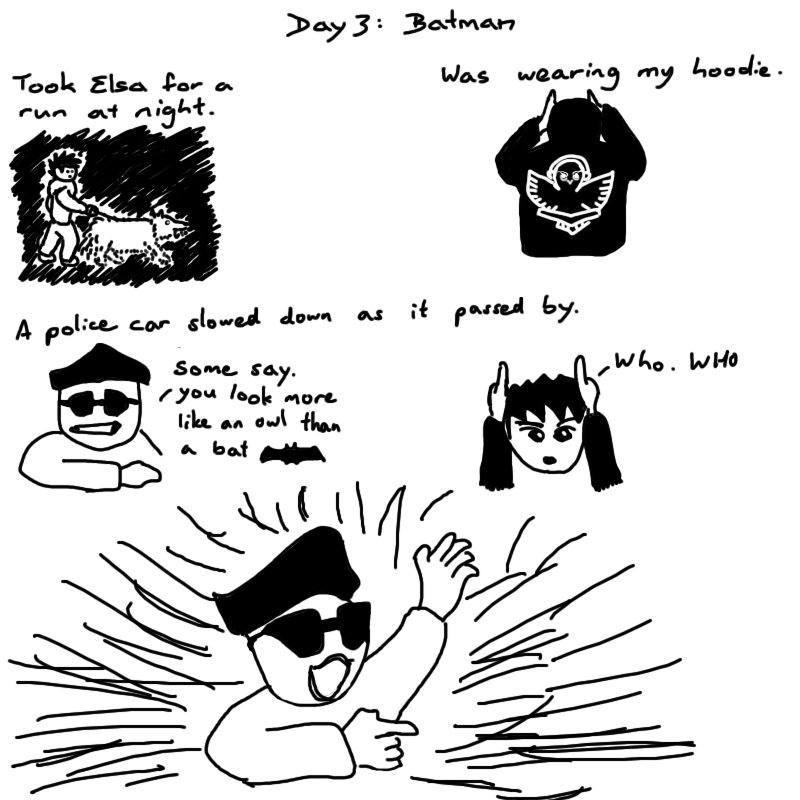 Day 3: Batman
Took Elsa for a
run at night.
Was wearing my hoodie.
A police car slowed down as it passed by.
Some say.
you look more
like an owl than
a bat
Who. WHO